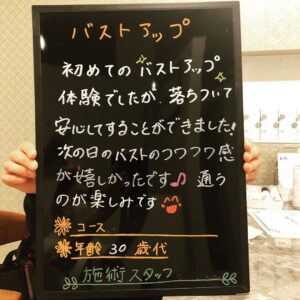 バストアップ
初めてのバストアップ
体験でしたが、落ちついて
安心してすることができました!
次の日のバストのフワフワ感
が嬉しかったです♪ 通う
のが楽しみです
コース
年齢 30 歳代
施術スタッフ